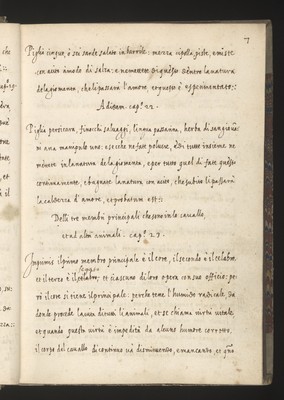 7
Piglia cinque, ò sei sarde salate in barrile: mezza cipolla piste, e miste
con aceto à modo di salsa: e ne mettete di questo dentro la natura
della giomenta, che le passarà l'amore, e questo è esperimentato:
Adidem. cap.º 22.
Piglia persicaria, finocchi salvaggi, lingua passarina, herba di
ana manipolo uno: e secche ne farai polvere, e di tutte insieme ne
metterete in la natura della giomenta, e per tutto quel dì farete questo
continuamente; e bagnate la natura con aceto, che subito li passarà
la caldezza d'amore, et probatum est:
Delli tre membri principali che sono in lo cavallo,
et ad altri animali. cap.º 23.
Inprimis il primo membro principale è il core, il secondo è il celebro,
et il terzo è il fegato; et ciascuno di loro opera con suo officio: pe
rò il core si tiene il principale: perche tene l'humido radicale, da
donde procede la vita di tutti l'animali, et se chiama virtù vitale,
et quando questa virtù è impedita da alcuno humore corrotto,
il corpo del cavallo di continuo và diminuendo, e mancando, et